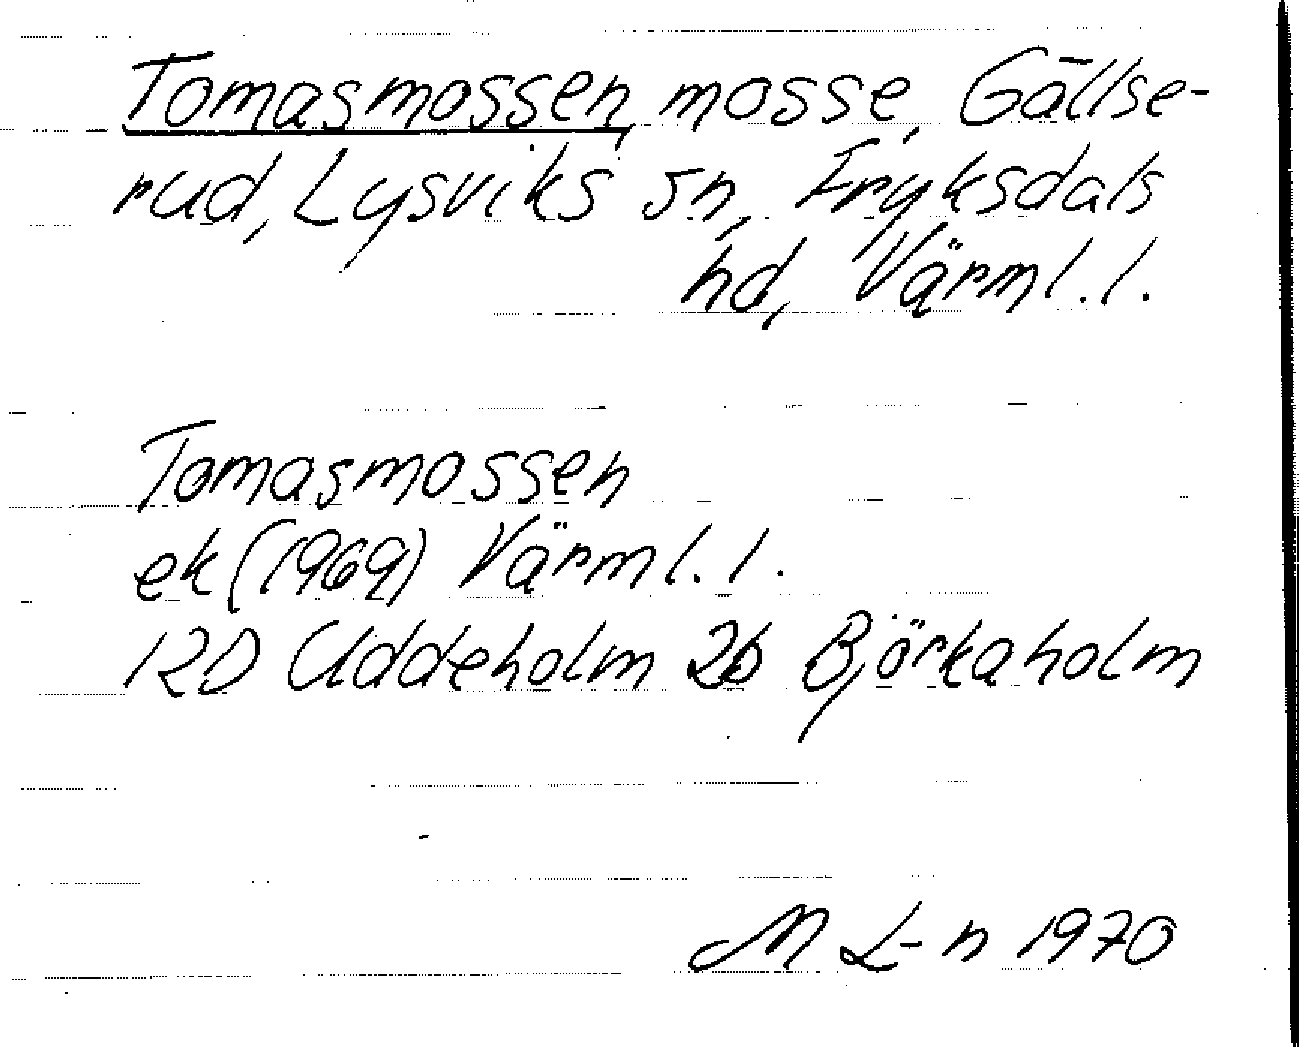 Tomasmossen, mosse, Gällse-
rud, Lysviks sn, Fryksdals
hd, Värml. l.
Tomasmossen
ek (1969) Värml. l.
12D Uddeholm 2b Björkaholm
M L-n 1970